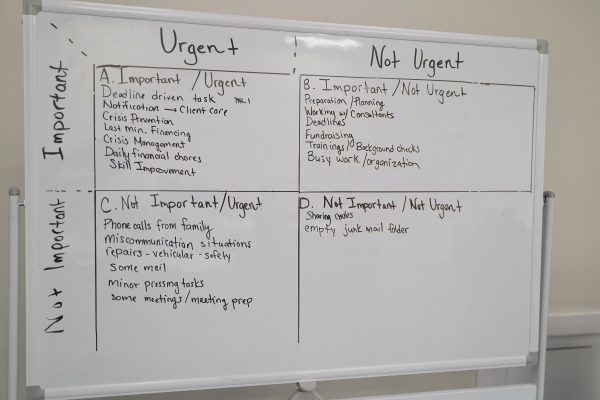 Urgent
Not Urgent
Important
A. Important / Urgent
Deadline driven task
Notification → Client care
Crisis Prevention
Last min. Financing
Crisis Management
Daily financial chores
Skill Improvement
B. Important / Not Urgent
Preparation / Planning
Working w/ Consultants
Deadlines
Fundraising
Trainings / Background checks
Busy work / organization
Not Important
C. Not Important / Urgent
Phone calls from family
Miscommunication situations
repairs - vehicular - safety
Some mail
minor pressing tasks
some meetings / meeting prep
D. Not Important / Not Urgent
Sharing
empty junk mail folder